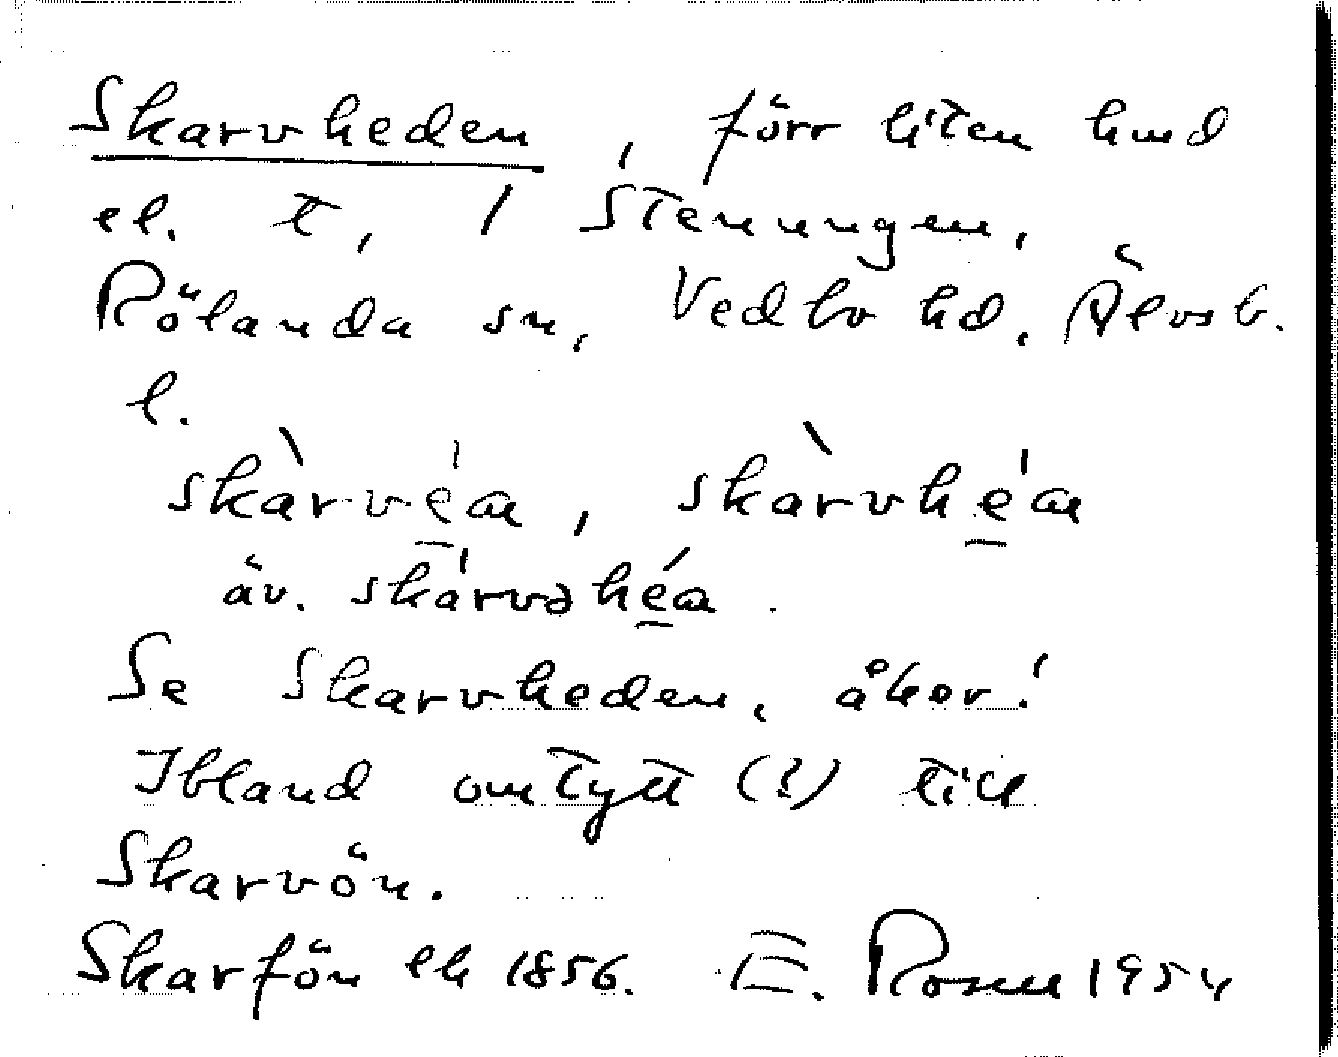 Skarvheden, förr liten hmd
el. t, i Stenungen,
Rölanda sn, Vedbo hd, Älvsb.
l.
skàrvéa, skàrvhéa
äv. skárvəhéa.
Se Skarvheden, åker!
Ibland omtytt (?) till
Skarvön.
Skarfön ek 1856. E. Rosell 1954